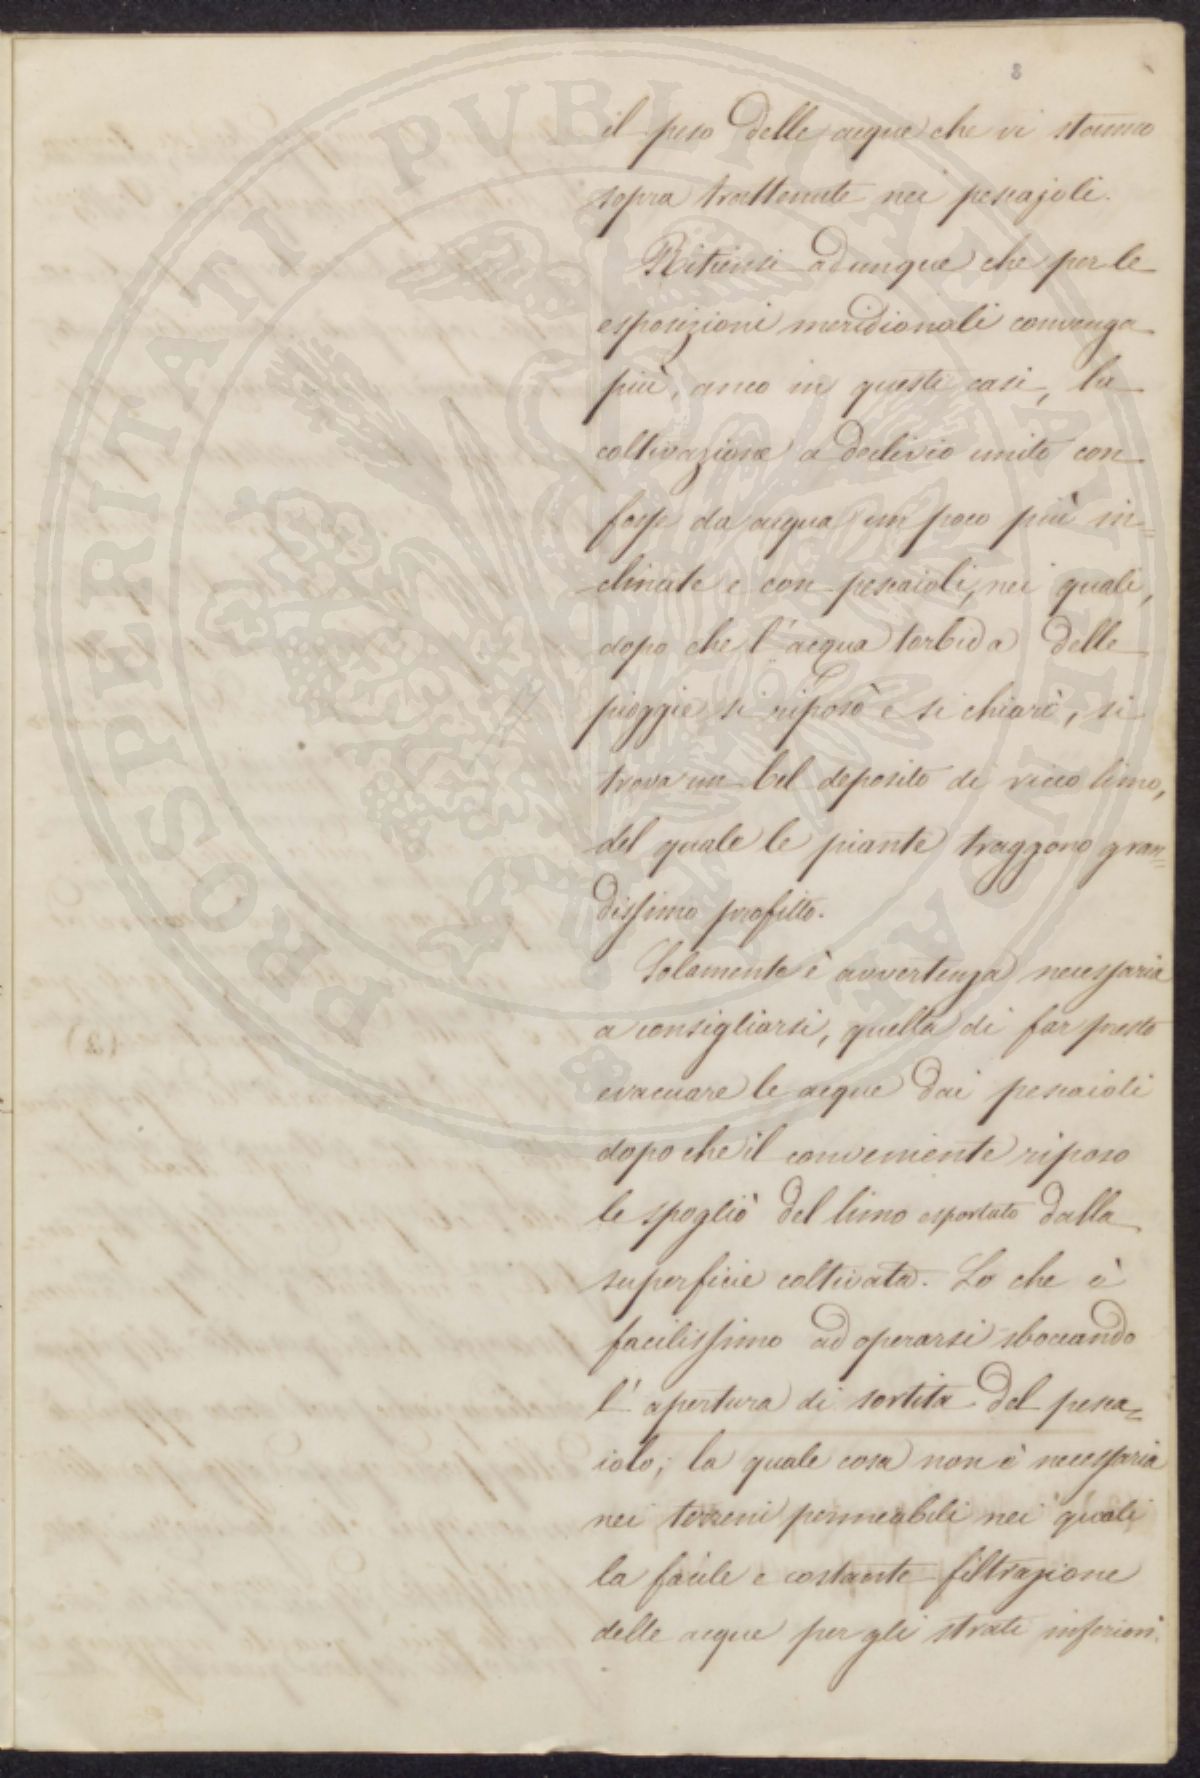 8
il peso delle acque che vi stanno
sopra trattenute nei pescajoli.
Ritiensi adunque che per le
esposizioni meridionali convenga
più, anco in questi casi, la
coltivazione a declivio unito con
fosse da acqua un poco più in=
clinate e con pescaioli, nei quali,
dopo che l'acqua torbida delle
pioggie si riposò e si chiarì, si
trova un bel deposito di ricco limo,
del quale le piante traggono gran=
dissimo profitto.
Solamente è avvertenza necessaria
a consigliarsi, quella di far presto
evacuare le acque dai pescaioli
dopo che il conveniente riposo
le spogliò del limo esportato dalla
superficie coltivata. Lo che è
facilissimo ad operarsi sboccando
l'apertura di sortita del pesca=
iolo; la quale cosa non è necessaria
nei terreni permeabili nei quali
la facile e costante filtrazione
delle acque per gli strati inferiori
PROSPERITATI PVBLICAE AVGENDAE